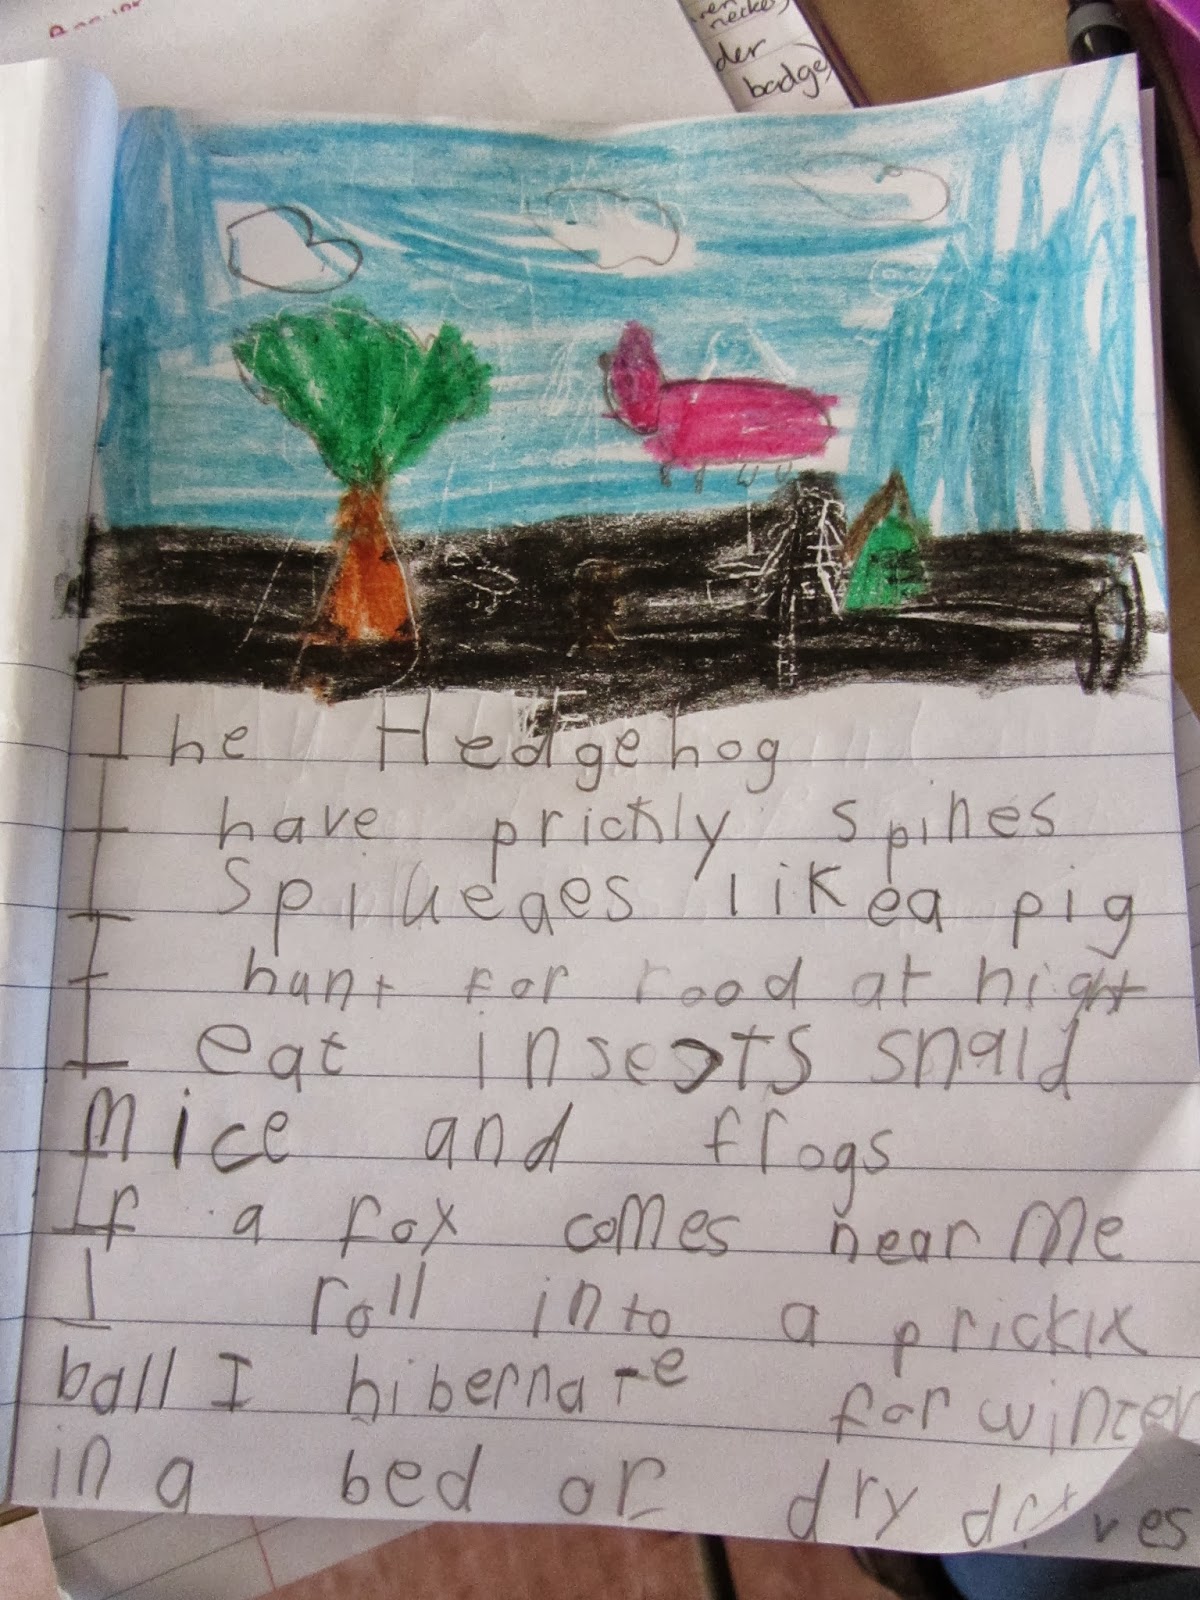 der
badge)
The Hedgehog
I have prickly spines
I Spiueaes like a pig
I hunt for rood at night
I eat insects snald
Mice and frogs
If a fox comes near Me
I roll into a prickix
ball I hibernate for winter
in a bed or dry